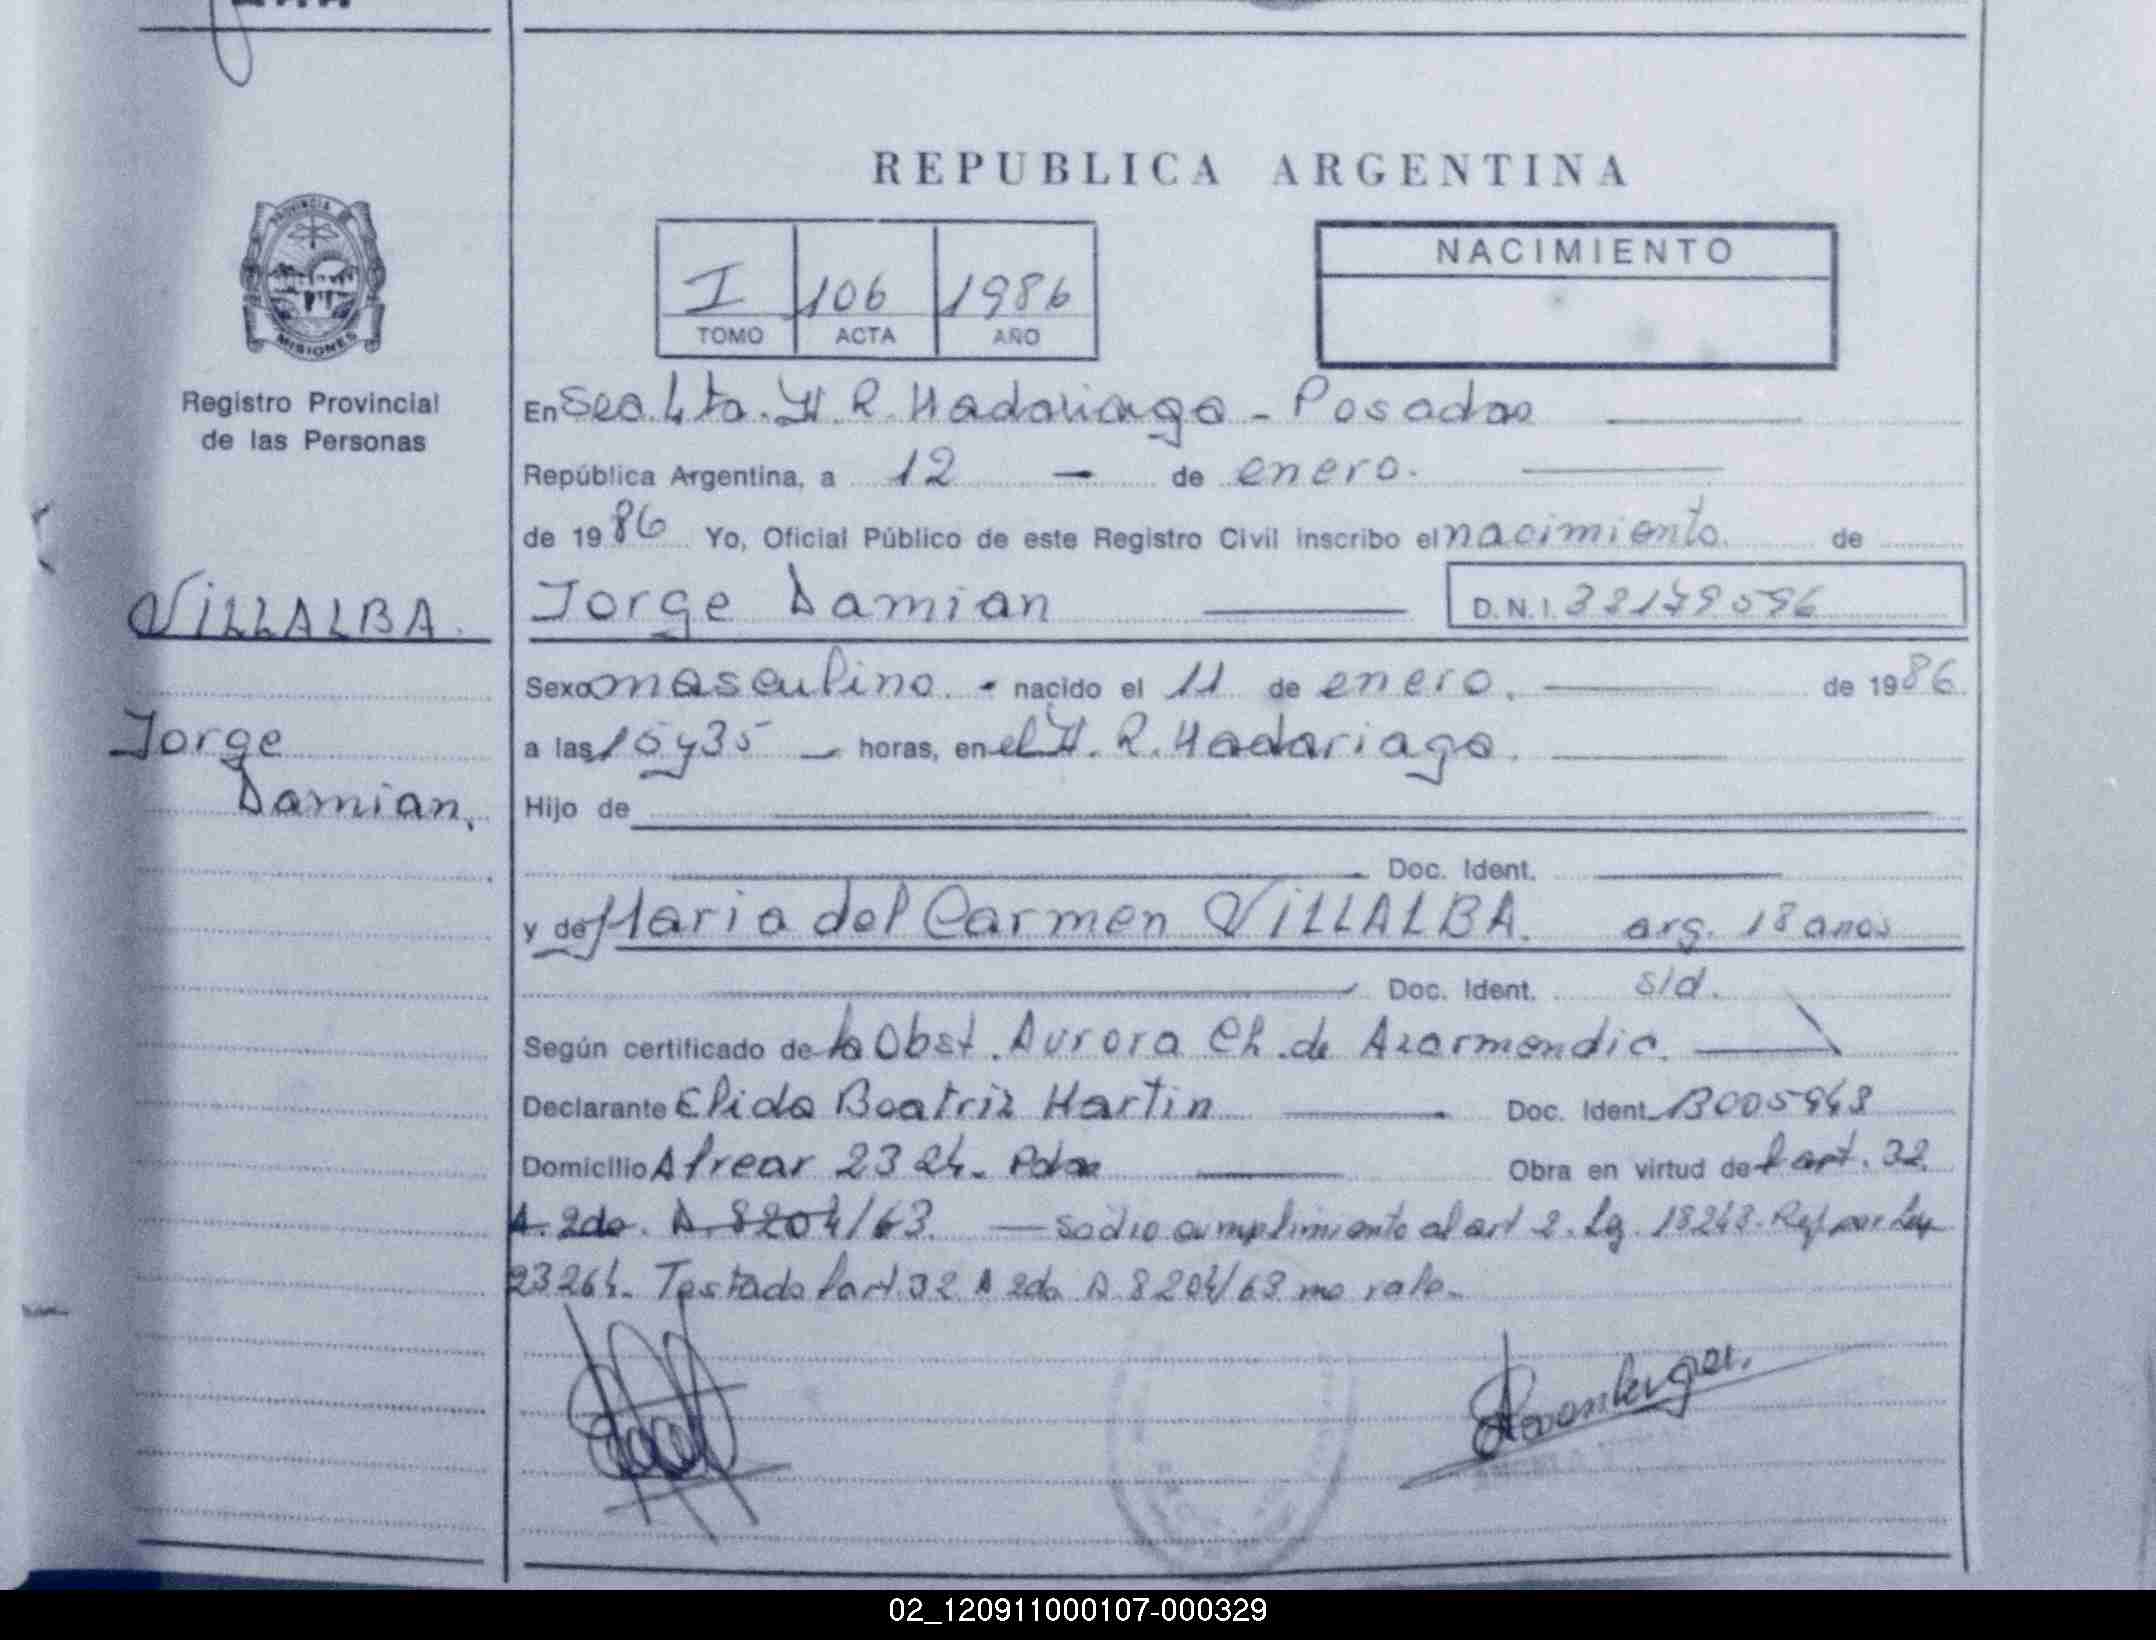 REPUBLICA ARGENTINA
PROVINCIA DE
MISIONES
Registro Provincial
de las Personas
I 106 1986
TOMO ACTA AÑO
NACIMIENTO
En Sec. 4ta. H. R. Madariaga - Posadas
República Argentina, a 12 — de enero.
de 19 86 Yo, Oficial Público de este Registro Civil inscribo el nacimiento. de
VILLALBA.
Jorge Damian
D.N.I. 32179596
Sexo masculino. - nacido el 11 de enero. de 19 86
Jorge
Damian.
a las 15 y 35 — horas, en el H. R. Madariaga.
Hijo de
Doc. Ident.
y de Maria del Carmen VILLALBA. arg. 18 anos
Doc. Ident. s/d.
Según certificado de la Obst. Aurora Ch. de Azarmendia.
Declarante Elida Beatriz Martin Doc. Ident. 13005943
Domicilio Alvear 2324. Pdas Obra en virtud del art. 32
A. 2do. D. 8204/63. — Se dio cumplimiento al art 2. Ley. 18248. Ref. por Ley
23264. Testado l art. 32 A 2do D 8204/63 no vale.
02_120911000107-000329